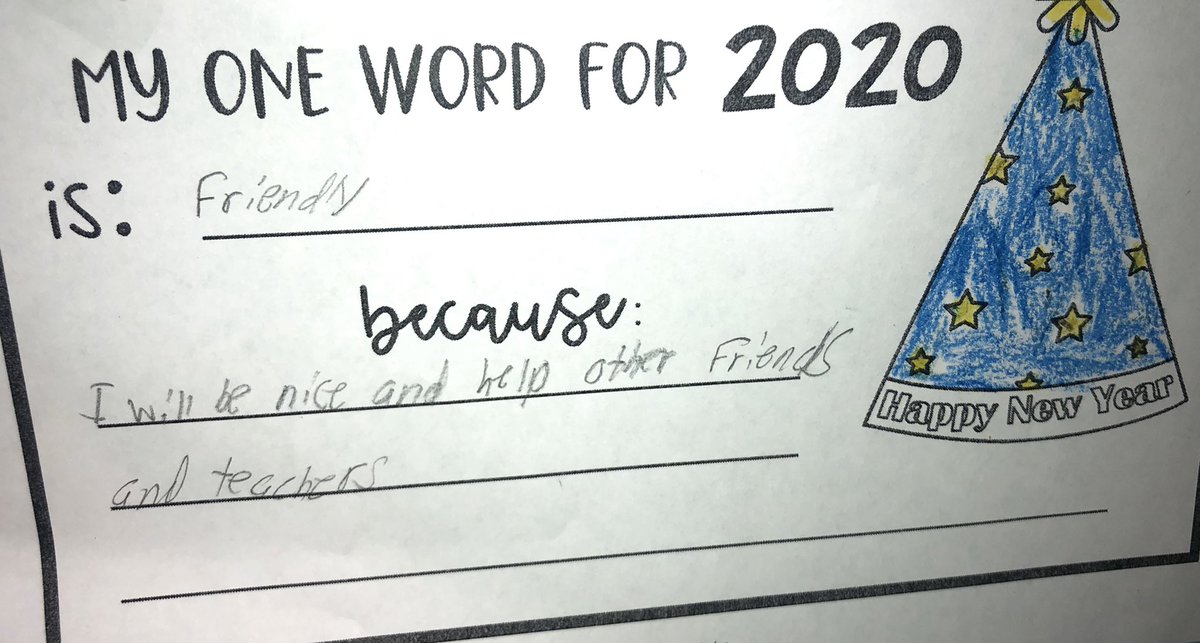 MY ONE WORD FOR 2020
is: Friendly
because:
I will be nice and help other Friends
and teachers
Happy New Year